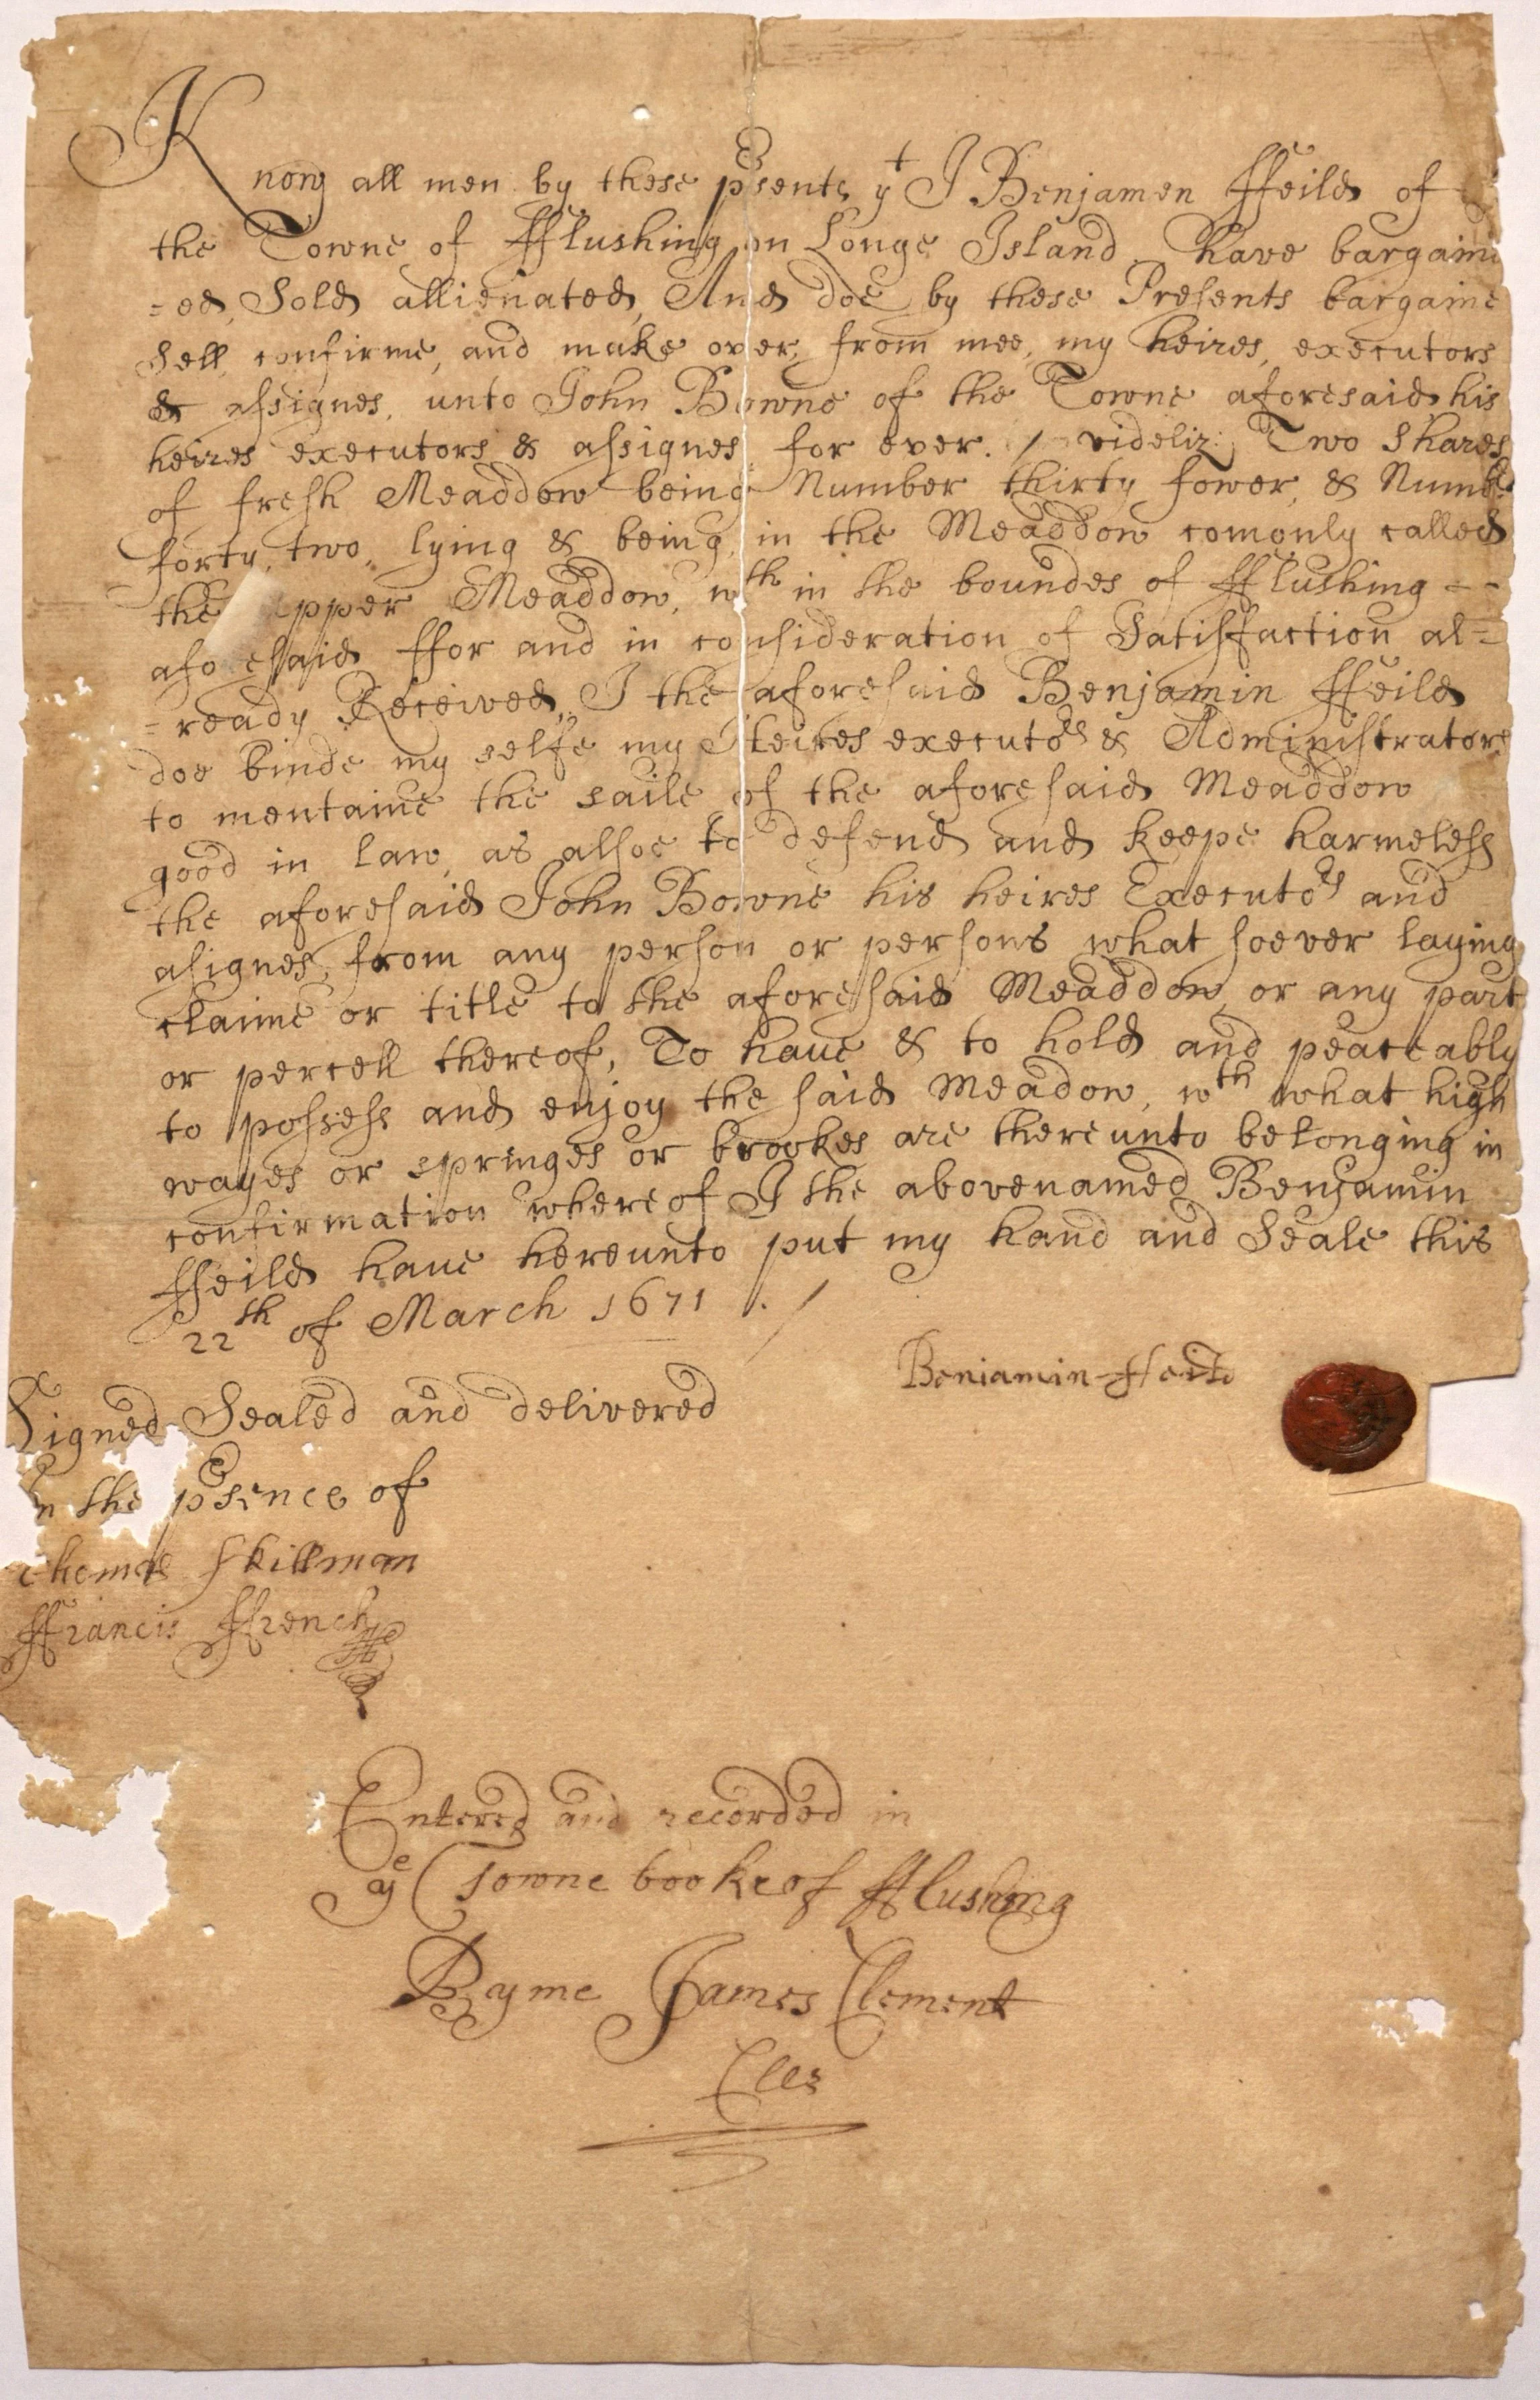 Know all men by these psents yt I Benjamen ffeild of
the Towne of fflushing on Longe Island have bargain
=ed, Sold allienated, And doe by these Presents bargaine
Sell, confirme, and make over, from mee, my heires, executors
& assignes, unto John Bowne of the Towne aforesaid his
heires executors & assignes for ever. / videliz: Two Shares
of fresh Meaddow being Number thirty fower, & Numbr
forty, two, lying & being, in the Meaddow comonly called
the upper Meaddow, wth in the boundes of fflushing
aforesaid ffor and in consideration of Satisfaction al=
=ready Received, I the aforesaid Benjamin ffeild
doe binde my selfe my Heires executors & Administrators
to mentaine the saile of the aforesaid Meaddow
good in law, as alsoe to defend and keepe harmeless
the aforesaid John Bowne his heires Executors and
asignes, from any person or persons what soever laying
claime or title to the aforesaid Meaddow or any part
or percell thereof, To have & to hold and peaceably
to possess and enjoy the said Meadow, wth what high
wayes or springes or brookes are thereunto belonging in
confirmation whereof I the abovenamed Benjamin
ffeild have hereunto put my hand and Seale this
22th of March 1671 ./
Beniamin ffeild
Signed Sealed and delivered
in the psence of
Thomas Skillman
ffrancis ffrench
Entered and recorded in
ye Towne booke of fflushing
By me James Clement
Cler